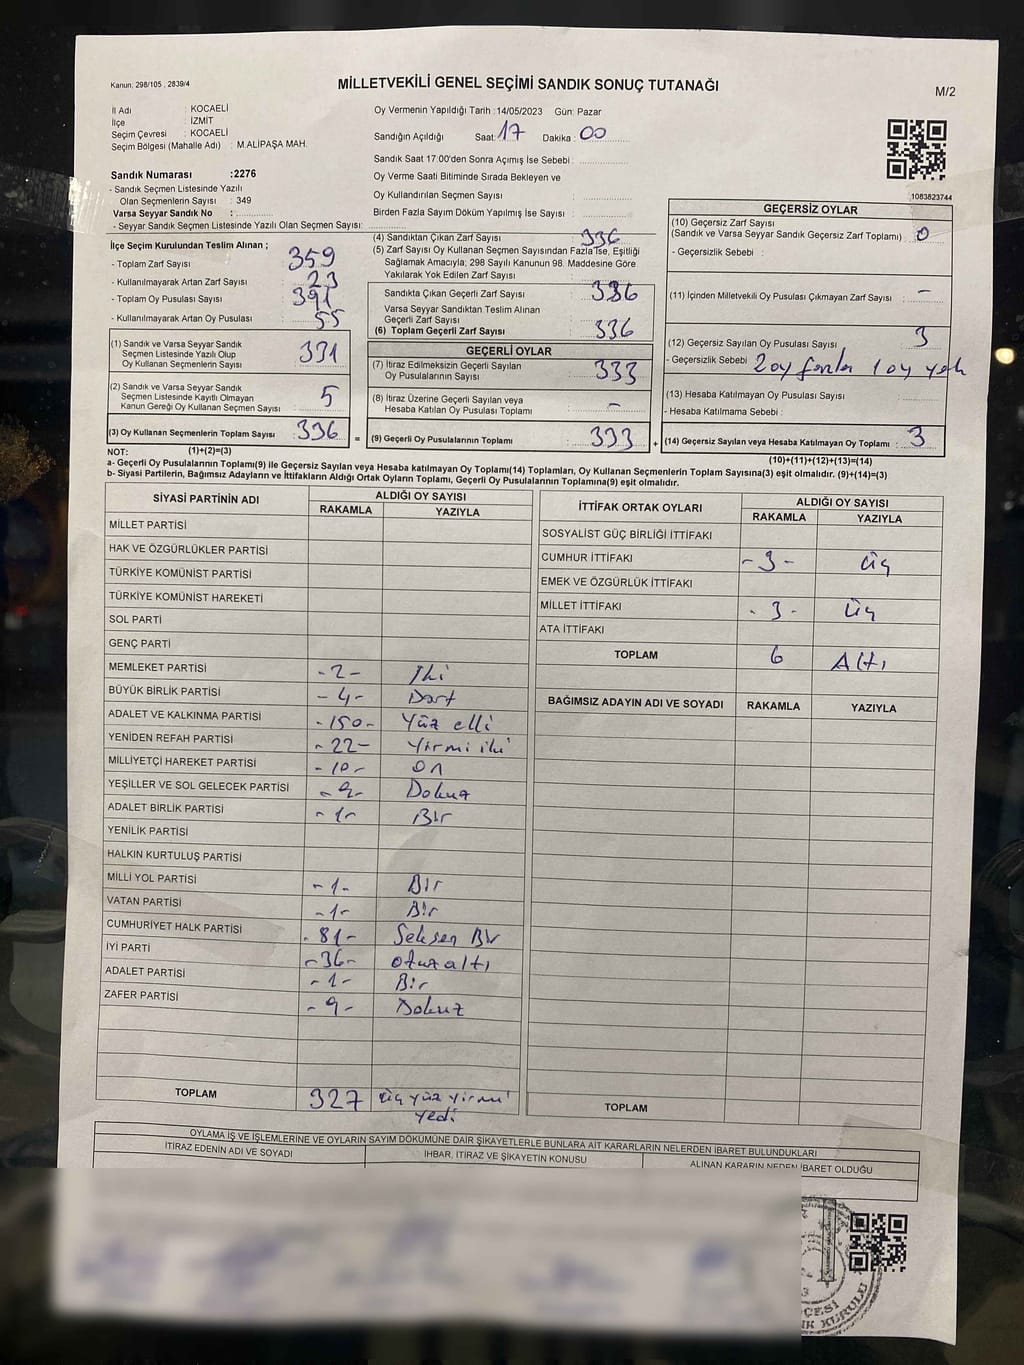 Kanun: 298/105 , 2839/4
MİLLETVEKİLİ GENEL SEÇİMİ SANDIK SONUÇ TUTANAĞI
M/2
İl Adı : KOCAELİ
İlçe : İZMİT
Seçim Çevresi : KOCAELİ
Seçim Bölgesi (Mahalle Adı) : M.ALİPAŞA MAH.
Sandık Numarası :2276
- Sandık Seçmen Listesinde Yazılı
Olan Seçmenlerin Sayısı : 349
Varsa Seyyar Sandık No :
- Seyyar Sandık Seçmen Listesinde Yazılı Olan Seçmen Sayısı:
Oy Vermenin Yapıldığı Tarih :14/05/2023 Gün: Pazar
Sandığın Açıldığı Saat: 17 Dakika : 00
Sandık Saat 17:00'den Sonra Açımış İse Sebebi :
Oy Verme Saati Bitiminde Sırada Bekleyen ve
Oy Kullandırılan Seçmen Sayısı :
Birden Fazla Sayım Döküm Yapılmış İse Sayısı :
1083823744
İlçe Seçim Kurulundan Teslim Alınan ;
- Toplam Zarf Sayısı : 359
- Kullanılmayarak Artan Zarf Sayısı : 23
- Toplam Oy Pusulası Sayısı : 391
- Kullanılmayarak Artan Oy Pusulası : 55
(1) Sandık ve Varsa Seyyar Sandık
Seçmen Listesinde Yazılı Olup
Oy Kullanan Seçmenlerin Sayısı : 331
(2) Sandık ve Varsa Seyyar Sandık
Seçmen Listesinde Kayıtlı Olmayan
Kanun Gereği Oy Kullanan Seçmen Sayısı : 5
(3) Oy Kullanan Seçmenlerin Toplam Sayısı : 336
(1)+(2)=(3)
(4) Sandıktan Çıkan Zarf Sayısı : 336
(5) Zarf Sayısı Oy Kullanan Seçmen Sayısından Fazla İse, Eşitliği
Sağlamak Amacıyla; 298 Sayılı Kanunun 98. Maddesine Göre
Yakılarak Yok Edilen Zarf Sayısı :
Sandıkta Çıkan Geçerli Zarf Sayısı : 336
Varsa Seyyar Sandıktan Teslim Alınan
Geçerli Zarf Sayısı :
(6) Toplam Geçerli Zarf Sayısı : 336
GEÇERLİ OYLAR
(7) İtiraz Edilmeksizin Geçerli Sayılan
Oy Pusulalarının Sayısı : 333
(8) İtiraz Üzerine Geçerli Sayılan veya
Hesaba Katılan Oy Pusulası Toplamı : -
= (9) Geçerli Oy Pusulalarının Toplamı : 333 +
GEÇERSİZ OYLAR
(10) Geçersiz Zarf Sayısı
(Sandık ve Varsa Seyyar Sandık Geçersiz Zarf Toplamı) : 0
- Geçersizlik Sebebi :
(11) İçinden Milletvekili Oy Pusulası Çıkmayan Zarf Sayısı : -
(12) Geçersiz Sayılan Oy Pusulası Sayısı : 3
- Geçersizlik Sebebi : 2 oy fazla 1 oy yok
(13) Hesaba Katılmayan Oy Pusulası Sayısı :
- Hesaba Katılmama Sebebi :
(14) Geçersiz Sayılan veya Hesaba Katılmayan Oy Toplamı : 3
(10)+(11)+(12)+(13)=(14)
NOT:
a- Geçerli Oy Pusulalarının Toplamı(9) ile Geçersiz Sayılan veya Hesaba katılmayan Oy Toplamı(14) Toplamları, Oy Kullanan Seçmenlerin Toplam Sayısına(3) eşit olmalıdır. (9)+(14)=(3)
b- Siyasi Partilerin, Bağımsız Adayların ve İttifakların Aldığı Ortak Oyların Toplamı, Geçerli Oy Pusulalarının Toplamına(9) eşit olmalıdır.
SİYASİ PARTİNİN ADI ALDIĞI OY SAYISI
RAKAMLA YAZIYLA
MİLLET PARTİSİ
HAK VE ÖZGÜRLÜKLER PARTİSİ
TÜRKİYE KOMÜNİST PARTİSİ
TÜRKİYE KOMÜNİST HAREKETİ
SOL PARTİ
GENÇ PARTİ
MEMLEKET PARTİSİ -2- İki
BÜYÜK BİRLİK PARTİSİ -4- Dört
ADALET VE KALKINMA PARTİSİ -150- Yüz elli
YENİDEN REFAH PARTİSİ -22- Yirmi iki
MİLLİYETÇİ HAREKET PARTİSİ -10- On
YEŞİLLER VE SOL GELECEK PARTİSİ -9- Dokuz
ADALET BİRLİK PARTİSİ -1- Bir
YENİLİK PARTİSİ
HALKIN KURTULUŞ PARTİSİ
MİLLİ YOL PARTİSİ -1- Bir
VATAN PARTİSİ -1- Bir
CUMHURİYET HALK PARTİSİ -81- Seksen Bir
İYİ PARTİ -36- otuz altı
ADALET PARTİSİ -1- Bir
ZAFER PARTİSİ -9- Dokuz
TOPLAM 327 üç yüz yirmi
yedi
İTTİFAK ORTAK OYLARI ALDIĞI OY SAYISI
RAKAMLA YAZIYLA
SOSYALİST GÜÇ BİRLİĞİ İTTİFAKI
CUMHUR İTTİFAKI -3- üç
EMEK VE ÖZGÜRLÜK İTTİFAKI
MİLLET İTTİFAKI -3- üç
ATA İTTİFAKI
TOPLAM 6 Altı
BAĞIMSIZ ADAYIN ADI VE SOYADI RAKAMLA YAZIYLA
TOPLAM
OYLAMA İŞ VE İŞLEMLERİNE VE OYLARIN SAYIM DÖKÜMÜNE DAİR ŞİKAYETLERLE BUNLARA AİT KARARLARIN NELERDEN İBARET BULUNDUKLARI
İTİRAZ EDENİN ADI VE SOYADI İHBAR, İTİRAZ VE ŞİKAYETİN KONUSU ALINAN KARARIN NEDEN İBARET OLDUĞU